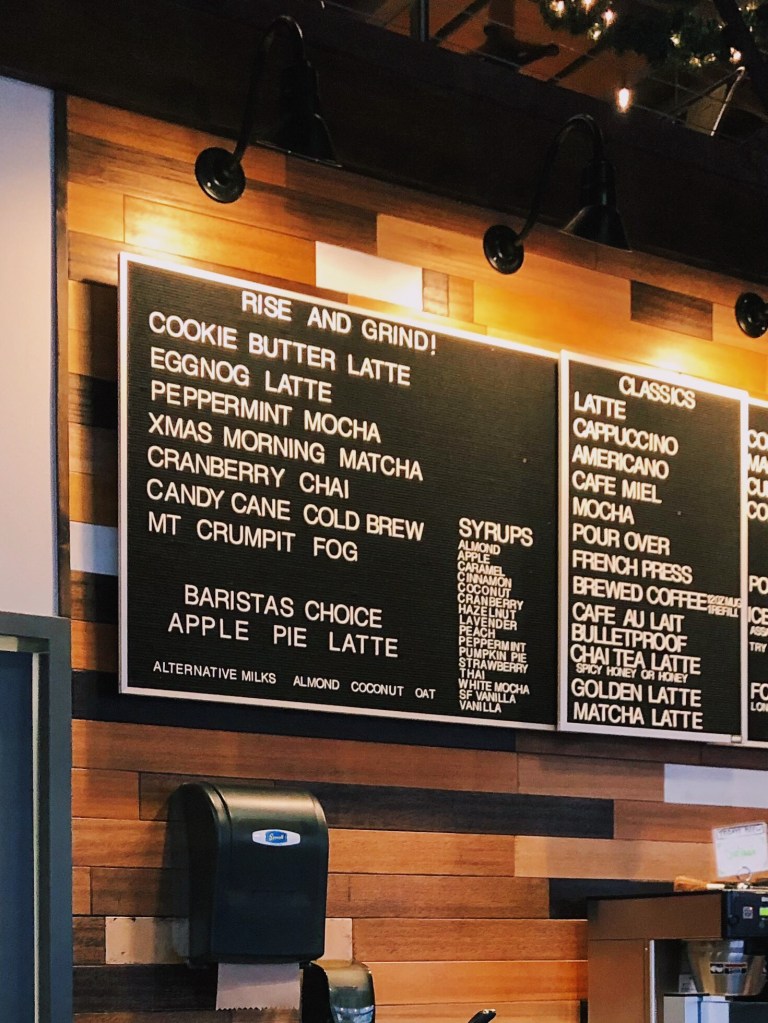 RISE AND GRIND!
COOKIE BUTTER LATTE
EGGNOG LATTE
PEPPERMINT MOCHA
XMAS MORNING MATCHA
CRANBERRY CHAI
CANDY CANE COLD BREW
MT CRUMPIT FOG
BARISTAS CHOICE
APPLE PIE LATTE
ALTERNATIVE MILKS ALMOND COCONUT OAT
SYRUPS
ALMOND
APPLE
CARAMEL
CINNAMON
COCONUT
CRANBERRY
HAZELNUT
LAVENDER
PEACH
PEPPERMINT
PUMPKIN PIE
STRAWBERRY
THAI
WHITE MOCHA
SF VANILLA
VANILLA
CLASSICS
LATTE
CAPPUCCINO
AMERICANO
CAFE MIEL
MOCHA
POUR OVER
FRENCH PRESS
BREWED COFFEE 12OZ MUG
1 REFILL
CAFE AU LAIT
BULLETPROOF
CHAI TEA LATTE
SPICY HONEY OR HONEY
GOLDEN LATTE
MATCHA LATTE
CO
MA
CU
CO
PO
ICE
ASS
TRY
FO
LON